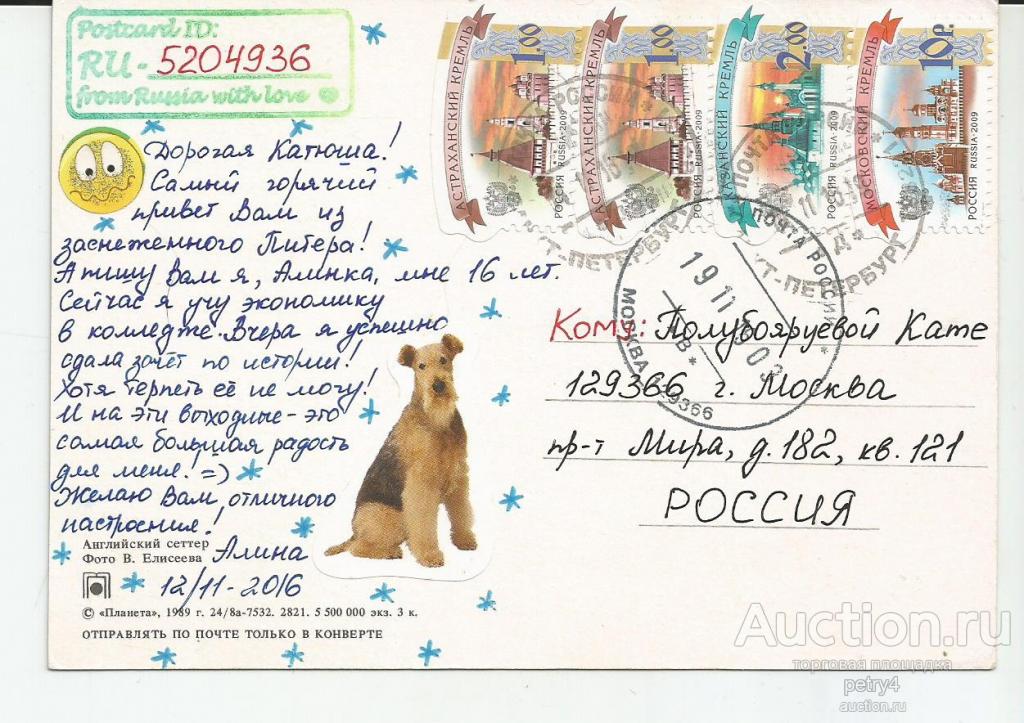 Postcard ID:
RU-5204936
from Russia with love
АСТРАХАНСКИЙ КРЕМЛЬ
1.00
РОССИЯ RUSSIA·2009
АСТРАХАНСКИЙ КРЕМЛЬ
1.00
РОССИЯ RUSSIA·2009
КАЗАНСКИЙ КРЕМЛЬ
2.00
РОССИЯ RUSSIA·2009
МОСКОВСКИЙ КРЕМЛЬ
10 Р.
РОССИЯ RUSSIA·2009
Дорогая Катюша!
Самый горячий
привет Вам из
заснеженного Питера!
А пишу Вам я, Алинка, мне 16 лет.
Сейчас я учу экономику
в колледже. Вчера я успешно
сдала зачёт по истории!
Хотя терпеть её не могу!
И на эти выходные - это
самая большая радость
для меня! =)
Желаю Вам отличного
настроения!
Алина
12/11-2016
Кому: Полубояруевой Кате
129366 г. Москва
пр-т Мира, д. 182, кв. 121
РОССИЯ
ПОЧТА РОССИИ
19 11
МОСКВА 129366
Английский сеттер
Фото В. Елисеева
© «Планета», 1989 г. 24/8а-7532. 2821. 5 500 000 экз. 3 к.
ОТПРАВЛЯТЬ ПО ПОЧТЕ ТОЛЬКО В КОНВЕРТЕ
Auction.ru
торговая площадка
petry4
auction.ru